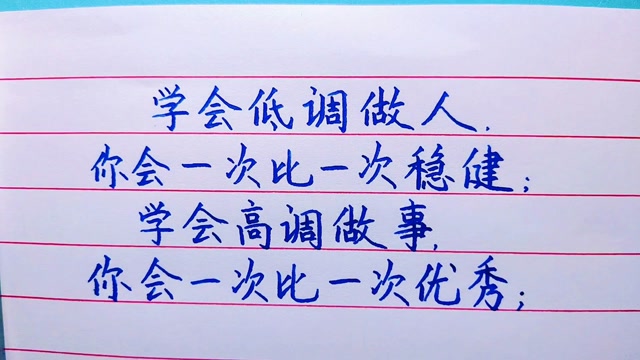 学会低调做人，
你会一次比一次稳健；
学会高调做事，
你会一次比一次优秀；